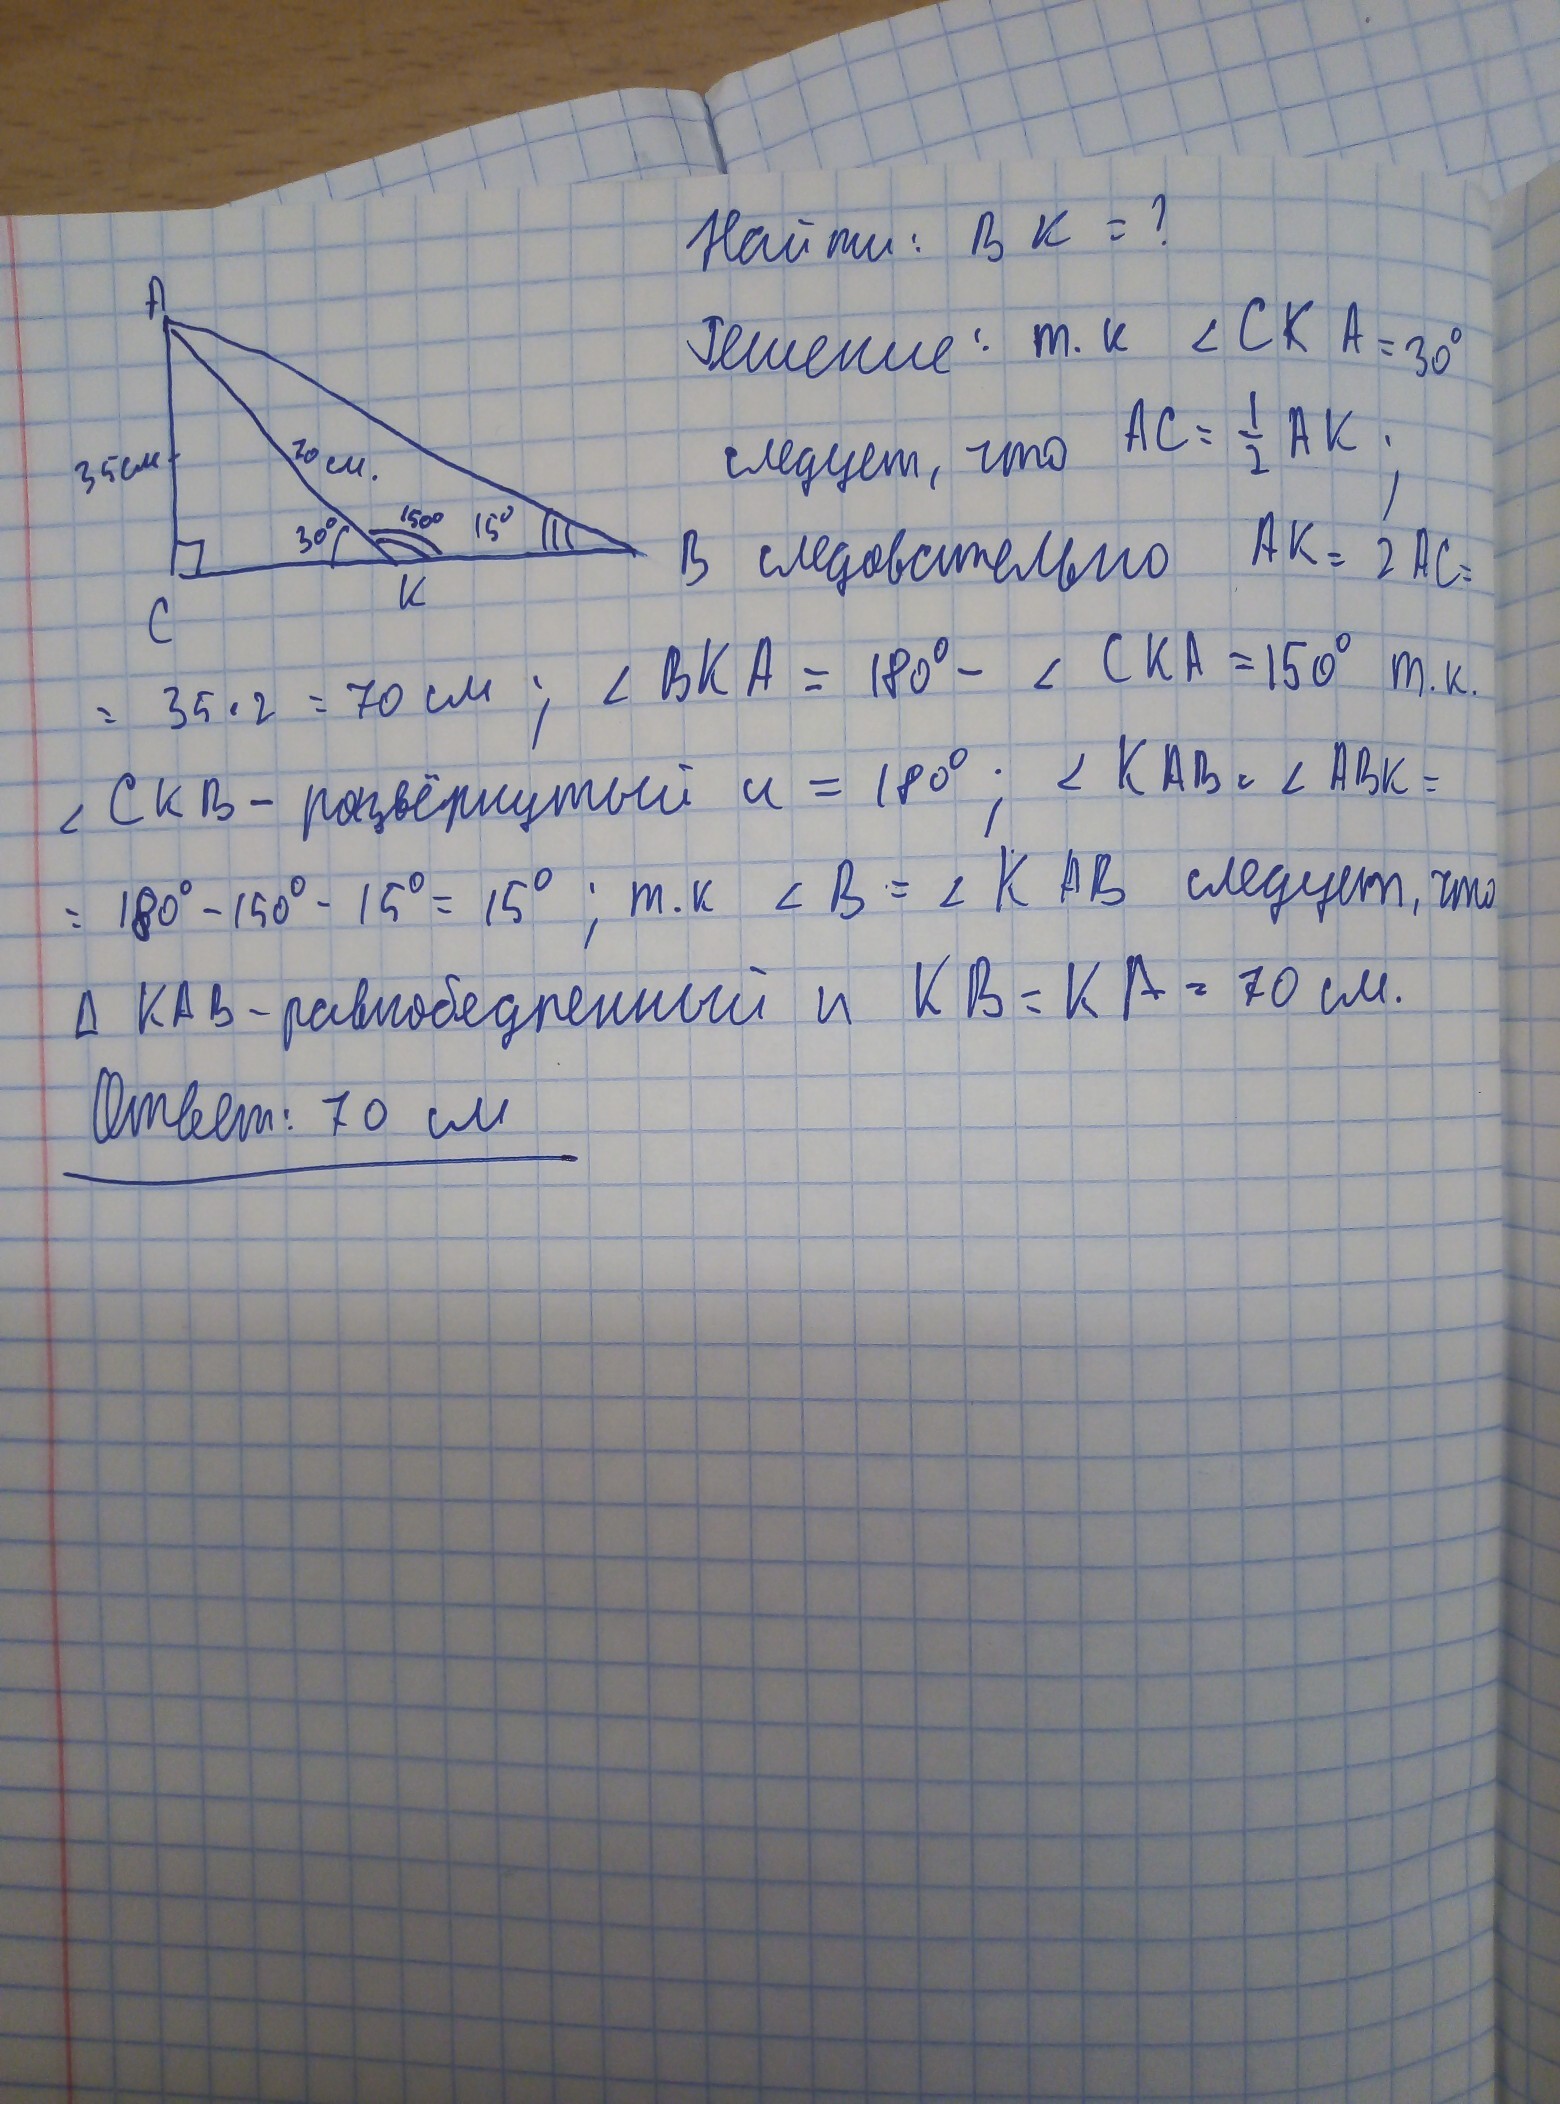 Найти: BK = ?
A
Решение: т.к ∠CKA = 30°
следует, что AC = 1/2 AK;
35см
70 см.
30°
150°
15°
B следовательно AK = 2AC =
K
C
= 35·2 = 70 см; ∠BKA = 180° - ∠CKA = 150° т.к.
∠CKB - развёрнутый и = 180°; ∠KAB = ∠ABK =
= 180° - 150° - 15° = 15°; т.к ∠B = ∠KAB следует, что
Δ KAB - равнобедренный и KB = KA = 70 см.
Ответ: 70 см